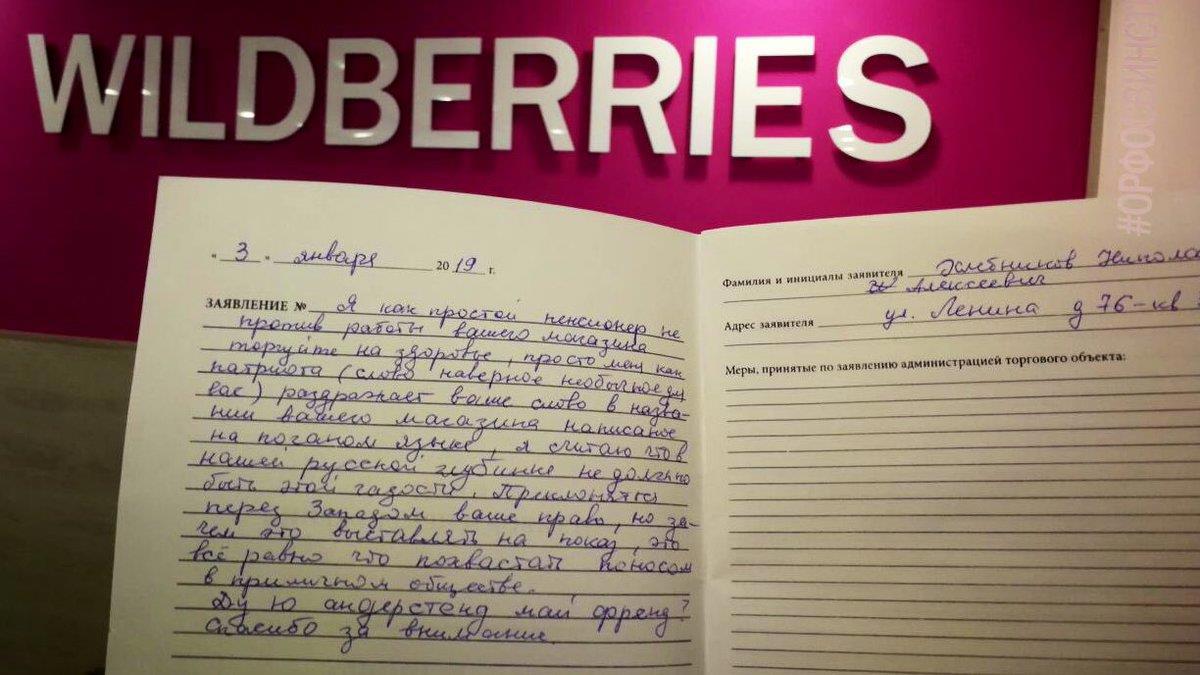 WILDBERRIES
#ОРФОСВИНСТ
« 3 » января 2019 г.
ЗАЯВЛЕНИЕ № Я как простой пенсионер не
против работы вашего магазина
торгуйте на здоровье, просто меня как
патриота (слово наверное необычное для
вас) раздражает ваше слово в назва-
нии вашего магазина написаное
на поганом языке, я считаю что в
нашей русской глубинке не должно
быть этой гадости. Преклонятся
перед Западом ваше право, но за-
чем это выставлять на показ, это
всё равно что похвастать поносом
в приличном обществе.
Ду ю андерстенд май френд?
Спасибо за внимание.
Фамилия и инициалы заявителя Хлебников Никола
Алексеевич
Адрес заявителя ул. Ленина д 76-кв
Меры, принятые по заявлению администрацией торгового объекта: